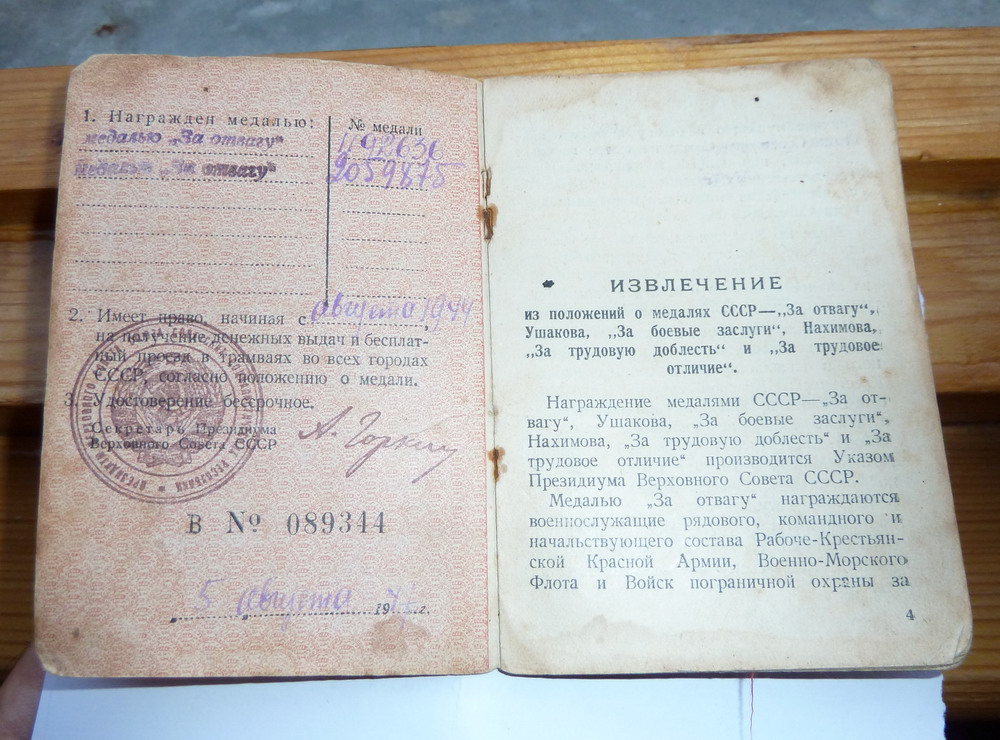 1. Награжден медалью:
№ медали
медалью „За отвагу“
1192636
медалью „За отвагу“
2059875
2. Имеет право, начиная с августа 1944,
на получение денежных выдач и бесплат-
ный проезд в трамваях во всех городах
СССР, согласно положению о медали.
3. Удостоверение бессрочное.
Секретарь Президиума
Верховного Совета СССР
А. Горкин
В № 089344
„5 „ августа 19 г.
ИЗВЛЕЧЕНИЕ
из положений о медалях СССР—„За отвагу“,
Ушакова, „За боевые заслуги“, Нахимова,
„За трудовую доблесть“ и „За трудовое
отличие“.
Награждение медалями СССР—„За от-
вагу“, Ушакова, „За боевые заслуги“,
Нахимова, „За трудовую доблесть“ и „За
трудовое отличие“ производится Указом
Президиума Верховного Совета СССР.
Медалью „За отвагу“ награждаются
военнослужащие рядового, командного и
начальствующего состава Рабоче-Крестьян-
ской Красной Армии, Военно-Морского
Флота и Войск пограничной охраны за
4